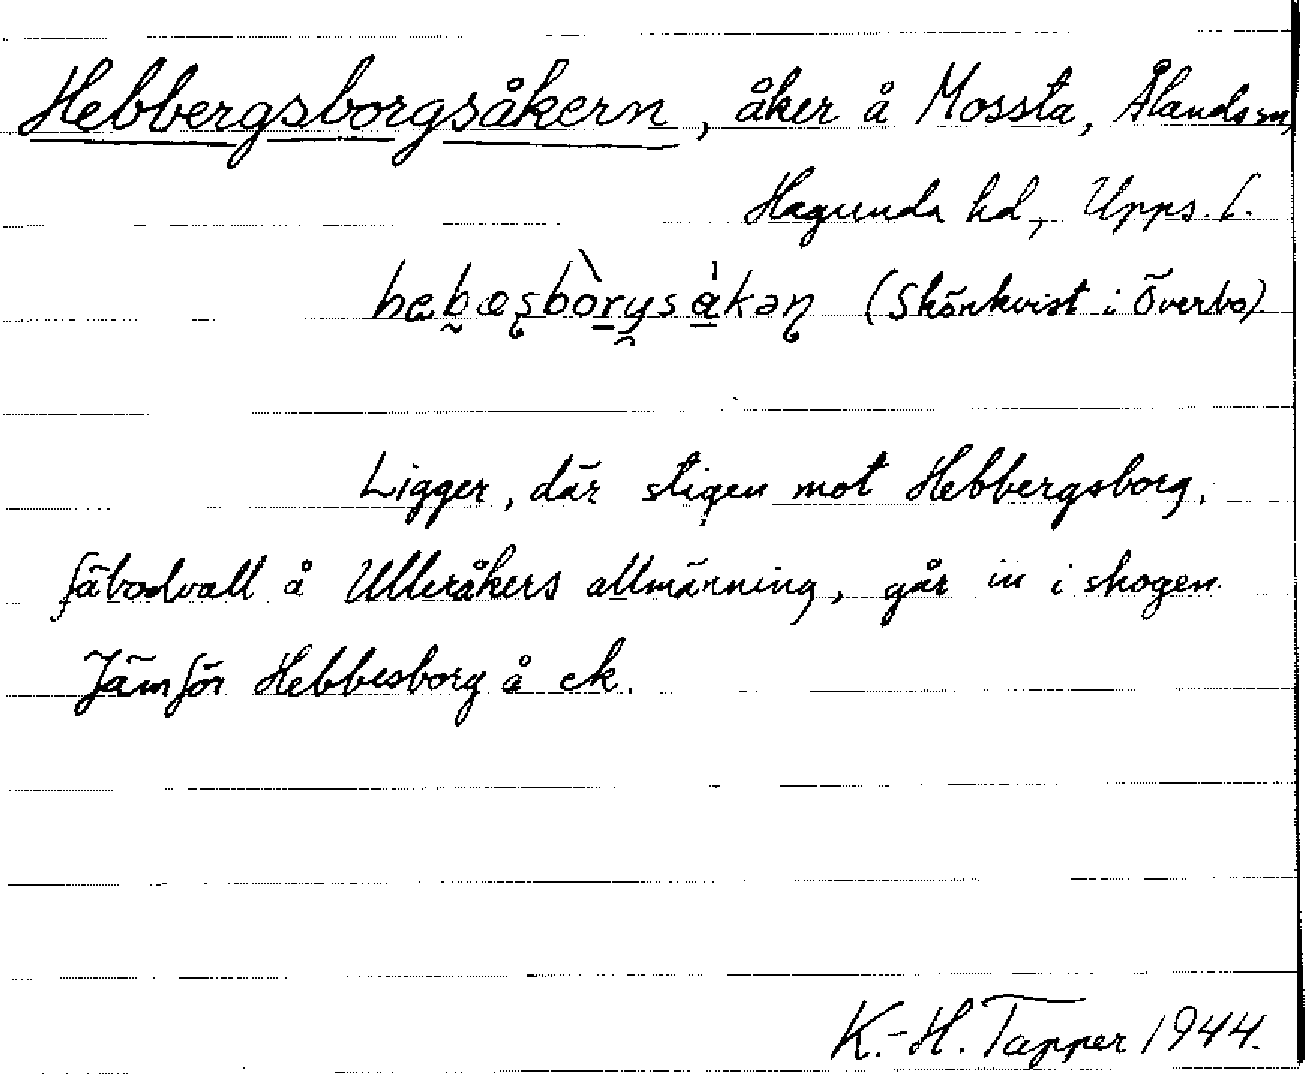 Hebbergsborgsåkern, åker å Mossta, Ålands sn,
Hagunda hd, Upps. l.
(Skönkvist i Överbo)
Ligger, där stigen mot Hebbergsborg,
fäbodvall å Ulleråkers allmänning, går in i skogen.
Jämför Hebbesborg å ek.
K.-H. Tapper 1944.